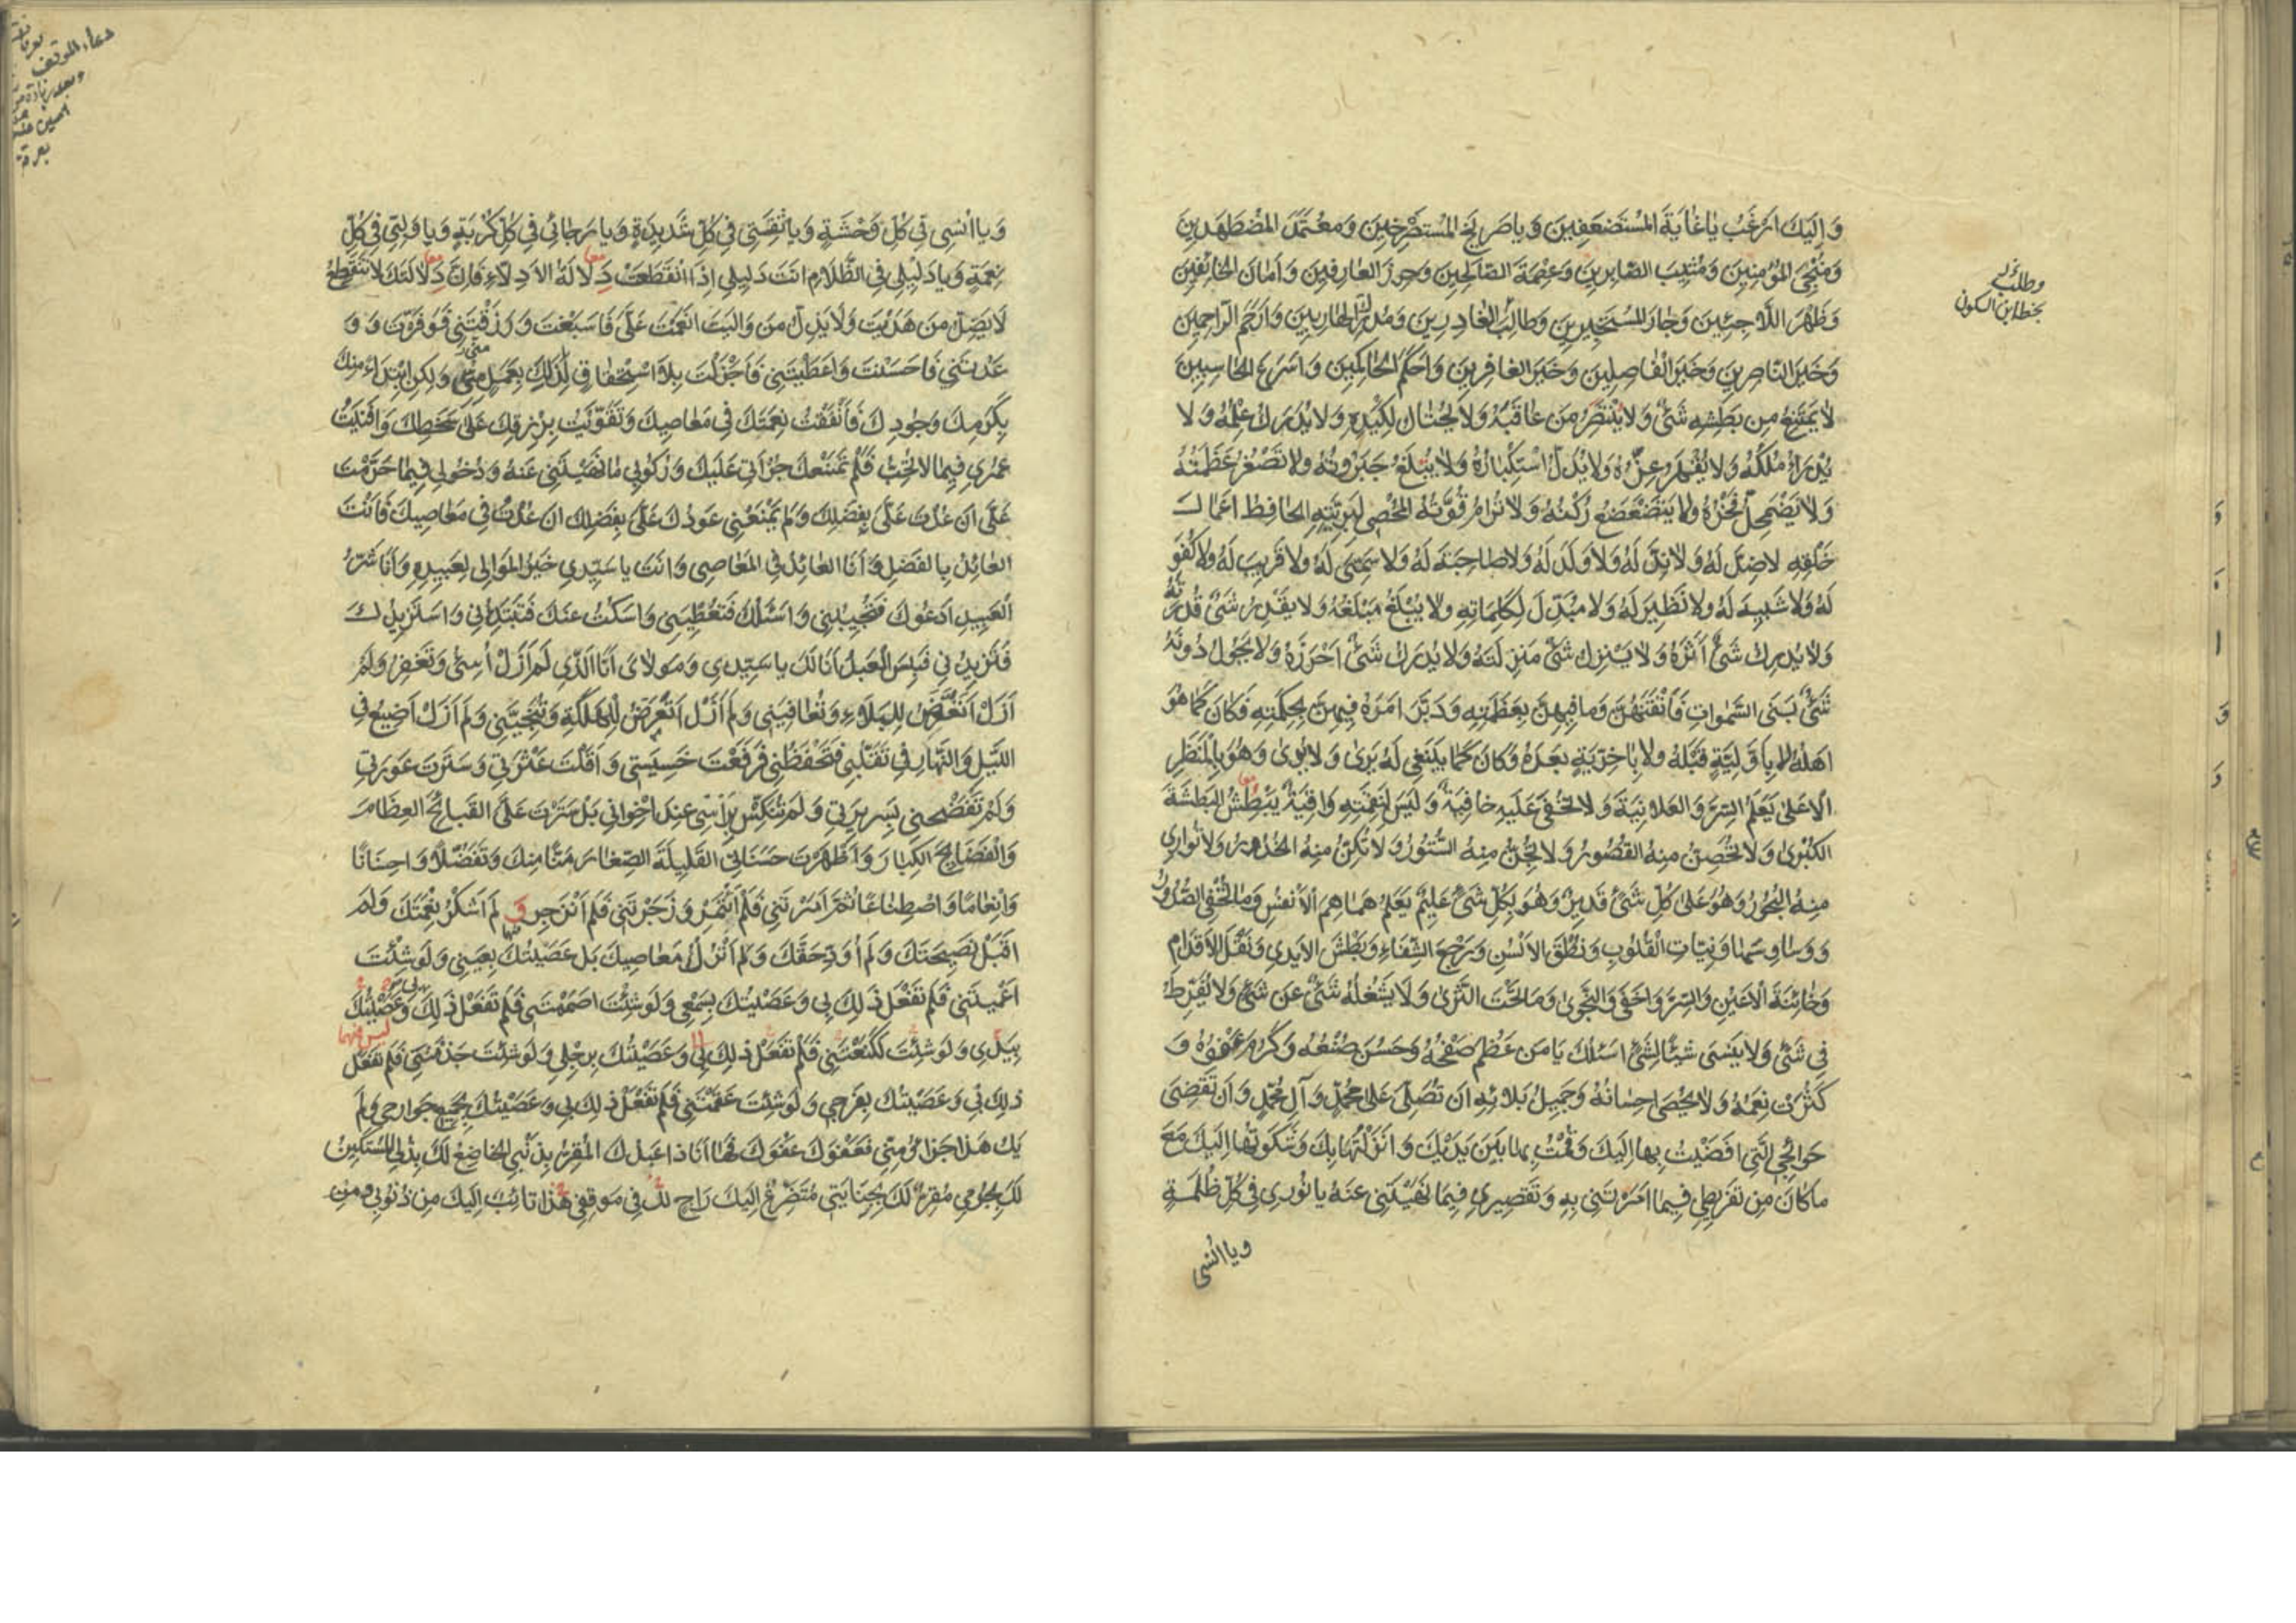 وَاِلَيْكَ اَرْغَبُ يٰا غٰايَةَ الْمُسْتَضْعَفِينَ وَيا صَرِيخَ الْمُسْتَصْرِخِينَ وَمُعْتَمَدَ الْمُضْطَهَدِينَ
وَمُنْجِيَ الْمُؤْمِنِينَ وَمُثِيبَ الصّابِرِينَ وَعِصْمَةَ الصّالِحِينَ وَحِرْزَ الْعارِفِينَ وَاَمانَ الْخائِفِينَ
وَظَهْرَ اللّاجِئِينَ وَجارَ الْمُسْتَجِيرِينَ وَطالِبَ الْغادِرِينَ وَمُدْرِكَ الْهارِبِينَ وَاَرْحَمَ الرّاحِمِينَ
وَخَيْرَ النّاصِرِينَ وَخَيْرَ الْفاصِلِينَ وَخَيْرَ الْغافِرِينَ وَاَحْكَمَ الْحاكِمِينَ وَاَسْرَعَ الْحاسِبِينَ
لا يَمْتَنِعُ مِن بَطْشِهِ شَيْءٌ وَلا يَنْتَصِرُ مَن عاقَبَهُ وَلا يُحْتالُ لِكَيْدِهِ وَلا يُدْرَكُ عِلْمُهُ وَلا
يُدْرَأُ مُلْكُهُ وَلا يُقْهَرُ عِزُّهُ وَلا يُذَلُّ اسْتِكْبارُهُ وَلا يُبْلَغُ جَبَرُوتُهُ وَلا تَصْغُرُ عَظَمَتُهُ
وَلا يَضْمَحِلُّ فَخْرُهُ وَلا يَتَضَعْضَعُ رُكْنُهُ وَلا تُرامُ قُوَّتُهُ الْمُحْصِي لِبَرِيَّتِهِ الْحافِظُ اَعْمالَ
خَلْقِهِ لا ضِدَّ لَهُ وَلا نِدَّ لَهُ وَلا وَلَدَ لَهُ وَلا صاحِبَةَ لَهُ وَلا سَمِيَّ لَهُ وَلا قَرِيبَ لَهُ وَلا كُفْوَ
لَهُ وَلا شَبِيهَ لَهُ وَلا نَظِيرَ لَهُ وَلا مُبَدِّلَ لِكَلِماتِهِ وَلا يُبْلَغُ مَبْلَغُهُ وَلا يَقْدِرُ شَيْءٌ قُدْرَتَهُ
وَلا يُدْرِكُ شَيْءٌ اَثَرَهُ وَلا يَنْزِلُ شَيْءٌ مَنْزِلَتَهُ وَلا يُدْرَكُ شَيْءٌ اَحْرَزَهُ وَلا يَحُولُ دُونَهُ
شَيْءٌ بَنَى السَّمٰواتِ فَاَتْقَنَهُنَّ وَما فِيهِنَّ بِعَظَمَتِهِ وَدَبَّرَ اَمْرَهُ فِيهِنَّ بِحِكْمَتِهِ فَكانَ كَما هُوَ
اَهْلُهُ لا بِاَوَّلِيَّةٍ قَبْلَهُ وَلا بِاٰخِرِيَّةٍ بَعْدَهُ وَكانَ كَما يَنْبَغِي لَهُ يَرىٰ وَلا يُرىٰ وَهُوَ بِالْمَنْظَرِ
الْاَعْلىٰ يَعْلَمُ السِّرَّ وَالْعَلانِيَةَ وَلا تَخْفىٰ عَلَيْهِ خافِيَةٌ وَلَيْسَ لِنَقِمَتِهِ واقِيَةٌ يَبْطِشُ الْبَطْشَةَ
الْكُبْرىٰ وَلا تُحَصِّنُ مِنْهُ الْقُصُورُ وَلا تُجِنُّ مِنْهُ السُّتُورُ وَلا تُكِنُّ مِنْهُ الْخُدُورُ وَلا تُوارِي
مِنْهُ الْبُحُورُ وَهُوَ عَلىٰ كُلِّ شَيْءٍ قَدِيرٌ وَهُوَ بِكُلِّ شَيْءٍ عَلِيمٌ يَعْلَمُ هَماهِمَ الْاَنْفُسِ وَما تُخْفِي الصُّدُورُ
وَوَساوِسَها وَنِيّاتِ الْقُلُوبِ وَنُطْقَ الْاَلْسُنِ وَرَجْعَ الشِّفاهِ وَبَطْشَ الْاَيْدِي وَنَقْلَ الْاَقْدامِ
وَخائِنَةَ الْاَعْيُنِ وَالسِّرَّ وَاَخْفىٰ وَالنَّجْوىٰ وَما تَحْتَ الثَّرىٰ وَلا يَشْغَلُهُ شَيْءٌ عَن شَيْءٍ وَلا يُفَرِّطُ
فِي شَيْءٍ وَلا يَنْسىٰ شَيْئًا لِشَيْءٍ اَسْئَلُكَ يا مَن عَظُمَ صَفْحُهُ وَحَسُنَ صُنْعُهُ وَكَرُمَ عَفْوُهُ وَ
كَثُرَتْ نِعَمُهُ وَلا يُحْصىٰ اِحْسانُهُ وَجَمِيلُ بَلائِهِ اَن تُصَلِّيَ عَلىٰ مُحَمَّدٍ وَآلِ مُحَمَّدٍ وَاَن تَقْضِيَ
حَوائِجِي الَّتِي اَفْضَيْتُ بِها اِلَيْكَ وَقُمْتُ بِها بَيْنَ يَدَيْكَ وَاَنْزَلْتُها بِكَ وَشَكَوْتُها اِلَيْكَ مَعَ
ما كانَ مِن تَفْرِيطِي فِيما اَمَرْتَنِي بِهِ وَتَقْصِيرِي فِيما نَهَيْتَنِي عَنْهُ يا نُورِي فِي كُلِّ ظُلْمَةٍ
ويا انسى
بخط ابن السكون
وَيا اُنْسِي فِي كُلِّ وَحْشَةٍ وَيا ثِقَتِي فِي كُلِّ شَدِيدَةٍ وَيا رَجائِي فِي كُلِّ كُرْبَةٍ وَيا وَلِيِّي فِي كُلِّ
نِعْمَةٍ وَيا دَلِيلِي فِي الظَّلامِ اَنْتَ دَلِيلِي اِذَا انْقَطَعَتْ دَلالَةُ الْاَدِلّاءِ فَاِنَّ دَلالَتَكَ لا تَنْقَطِعُ
لا يَضِلُّ مَن هَدَيْتَ وَلا يَذِلُّ مَن وَالَيْتَ اَنْعَمْتَ عَلَيَّ فَاَسْبَغْتَ وَرَزَقْتَنِي فَوَفَّرْتَ وَ وَ
عَدْتَنِي فَاَحْسَنْتَ وَاَعْطَيْتَنِي فَاَجْزَلْتَ بِلَا اسْتِحْقاقٍ لِذٰلِكَ بِعَمَلٍ مِنِّي وَلٰكِنِ ابْتِداءً مِنْكَ
بِكَرَمِكَ وَجُودِكَ فَاَنْفَقْتُ نِعْمَتَكَ فِي مَعاصِيكَ وَتَقَوَّيْتُ بِرِزْقِكَ عَلىٰ سَخَطِكَ وَاَفْنَيْتُ
عُمْرِي فِيما لا تُحِبُّ فَلَمْ تَمْنَعْكَ جُرْاَتِي عَلَيْكَ وَرُكُوبِي ما نَهَيْتَنِي عَنْهُ وَدُخُولِي فِيما حَرَّمْتَ
عَلَيَّ اَن عُدْتَ عَلَيَّ بِفَضْلِكَ وَلَم يَمْنَعْنِي عَوْدُكَ عَلَيَّ بِفَضْلِكَ اَن عُدْتُ فِي مَعاصِيكَ فَاَنْتَ
الْعائِدُ بِالْفَضْلِ وَاَنَا الْعائِدُ فِي الْمَعاصِي وَاَنْتَ يا سَيِّدِي خَيْرُ الْمَوالِي لِعَبِيدِهِ وَاَنَا شَرُّ
الْعَبِيدِ اَدْعُوكَ فَتُجِيبُنِي وَاَسْئَلُكَ فَتُعْطِينِي وَاَسْكُتُ عَنْكَ فَتَبْتَدِئُنِي وَاَسْتَزِيدُكَ
فَتَزِيدُنِي فَبِئْسَ الْعَبْدُ اَنَا لَكَ يا سَيِّدِي وَمَوْلايَ اَنَا الَّذِي لَمْ اَزَلْ اُسِيءُ وَتَغْفِرُ وَلَمْ
اَزَلْ اَتَعَرَّضُ لِلْبَلاءِ وَتُعافِينِي وَلَم اَزَلْ اَتَعَرَّضُ لِلْهَلَكَةِ وَتُنْجِينِي وَلَم اَزَلْ اُضِيعُ فِي
اللَّيْلِ وَالنَّهارِ فِي تَقَلُّبِي فَتَحْفَظُنِي فَرَفَعْتَ خَسِيسَتِي وَاَقَلْتَ عَثْرَتِي وَسَتَرْتَ عَوْرَتِي
وَلَمْ تَفْضَحْنِي بِسَرِيرَتِي وَلَمْ تُنَكِّسْ بِرَأْسِي عِنْدَ اِخْوانِي بَلْ سَتَرْتَ عَلَيَّ الْقَبائِحَ الْعِظامَ
وَالْفَضائِحَ الْكِبارَ وَاَظْهَرْتَ حَسَناتِي الْقَلِيلَةَ الصِّغارَ مَنًّا مِنْكَ وَتَفَضُّلًا وَاِحْسانًا
وَاِنْعامًا وَاصْطِناعًا ثُمَّ اَمَرْتَنِي فَلَمْ اَئْتَمِرْ وَزَجَرْتَنِي فَلَم اَنْزَجِر وَ لَم اَشْكُرْ نِعْمَتَكَ وَلَمْ
اَقْبَلْ نَصِيحَتَكَ وَلَم اُؤَدِّ حَقَّكَ وَلَم اَتْرُكْ مَعاصِيكَ بَل عَصَيْتُكَ بِعَيْنِي وَلَو شِئْتَ
اَعْمَيْتَنِي فَلَم تَفْعَلْ ذٰلِكَ بِي وَعَصَيْتُكَ بِسَمْعِي وَلَو شِئْتَ اَصْمَمْتَنِي فَلَم تَفْعَلْ ذٰلِكَ وَعَصَيْتُكَ
بِيَدِي وَلَو شِئْتَ لَكَنَّعْتَنِي فَلَم تَفْعَلْ ذٰلِكَ بِي وَعَصَيْتُكَ بِرِجْلِي وَلَو شِئْتَ جَذَمْتَنِي فَلَم تَفْعَل
ذٰلِكَ بِي وَعَصَيْتُكَ بِفَرْجِي وَلَو شِئْتَ عَقَمْتَنِي فَلَم تَفْعَلْ ذٰلِكَ بِي وَعَصَيْتُكَ بِجَمِيعِ جَوارِحِي وَلَم
يَكُ هٰذا جَزاؤُكَ مِنِّي فَعَفْوَكَ عَفْوَكَ فَها اَنَا ذا عَبْدُكَ الْمُقِرُّ بِذَنْبِي الْخاضِعُ لَكَ بِذُلِّي الْمُسْتَكِينُ
لَكَ بِجُرْمِي مُقِرٌّ لَكَ بِجِنايَتِي مُتَضَرِّعٌ اِلَيْكَ راجٍ لَكَ فِي مَوْقِفِي هٰذا تائِبٌ اِلَيْكَ مِن ذُنُوبِي وَمِنَ
دعاء الموقف